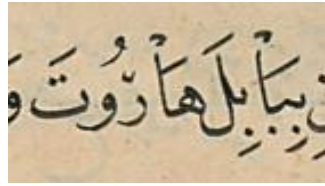 بِبَابِلَ هَارُوتَ وَ